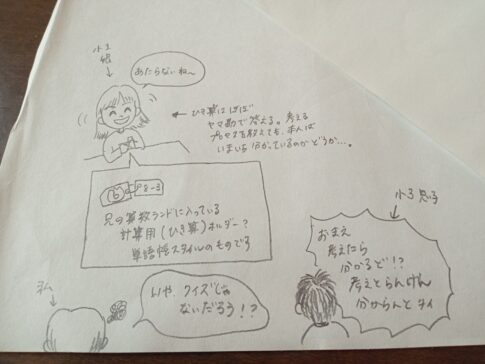 小1
娘
あたらないね〜
ひき算はほぼ
ヤマ勘で答える。考える
プロセスを教えても、まんば
いまいち分かっているのかどうか…。
⑥
8-3
兄の算数ランドに入っている
計算用(ひき算)ホルダー?
単語帳スタイルのものです
小3 息子
おまえ
考えたら
分かるど!?
考えとらんけん
分からんとタイ
私
いや、クイズじゃ
ないだろう!?